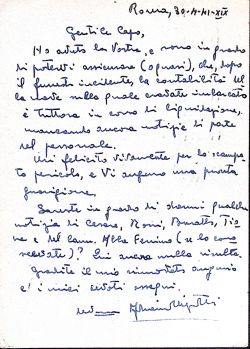 Roma, 30-4-41-XIX
Gentile Capo,
Ho avuto la Vostra, e sono in grado
di potervi assicurare che, dopo
il funesto incidente, la contabilità del
la nave sulla quale eravate imbarcato
è tuttora in corso di liquidazione,
mancando ancora notizie di parte
del personale.
Mi felicito vivamente per lo scampa
to pericolo, e Vi auguro una pronta
guarigione.
Sareste in grado di darmi qualche
notizia di Cesare, Rossi,
e del Alba Ferrino (se lo cono
scevate)? Qui ancora nulla risulta.
Gradite il mio rinnovato augurio
e i miei devoti ossequi.